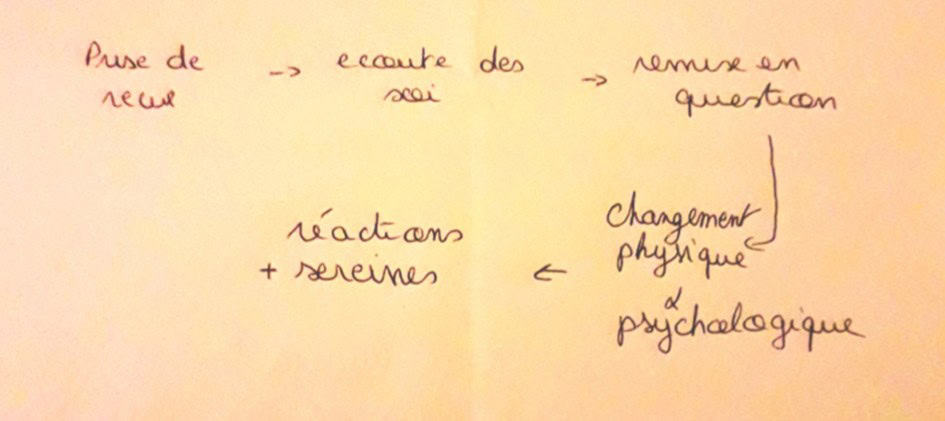 Prise de
recul
-> ecoute des
soi
-> remise en
question
changement
physique
&
psychologique
<- réactions
+ sereines